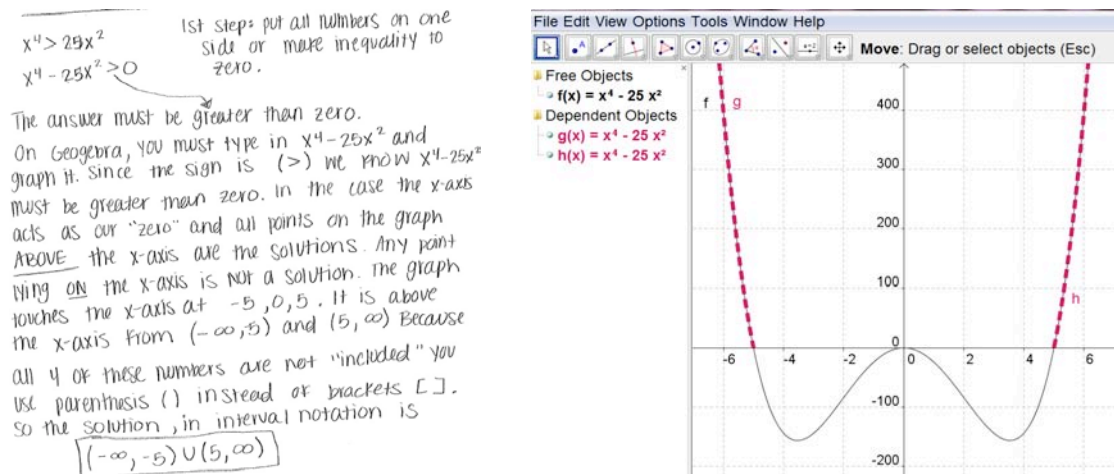 x⁴ > 25x²
x⁴ - 25x² > 0
1st step: put all numbers on one
side or make inequality to
zero.
The answer must be greater than zero.
On Geogebra, you must type in x⁴-25x² and
graph it. Since the sign is (>) we know x⁴-25x²
must be greater than zero. In the case the x-axis
acts as our "zero" and all points on the graph
ABOVE the x-axis are the solutions. Any point
lying ON the x-axis is NOT a solution. The graph
touches the x-axis at -5, 0, 5. It is above
the x-axis from (-∞,-5) and (5, ∞) Because
all 4 of these numbers are not "included" you
use parenthesis () instead of brackets [].
So the solution, in interval notation is
(-∞, -5) ∪ (5, ∞)
File Edit View Options Tools Window Help
Move: Drag or select objects (Esc)
Free Objects
f(x) = x⁴ - 25 x²
Dependent Objects
g(x) = x⁴ - 25 x²
h(x) = x⁴ - 25 x²
f g
h
400
300
200
100
0
-100
-200
-6 -4 -2 0 2 4 6